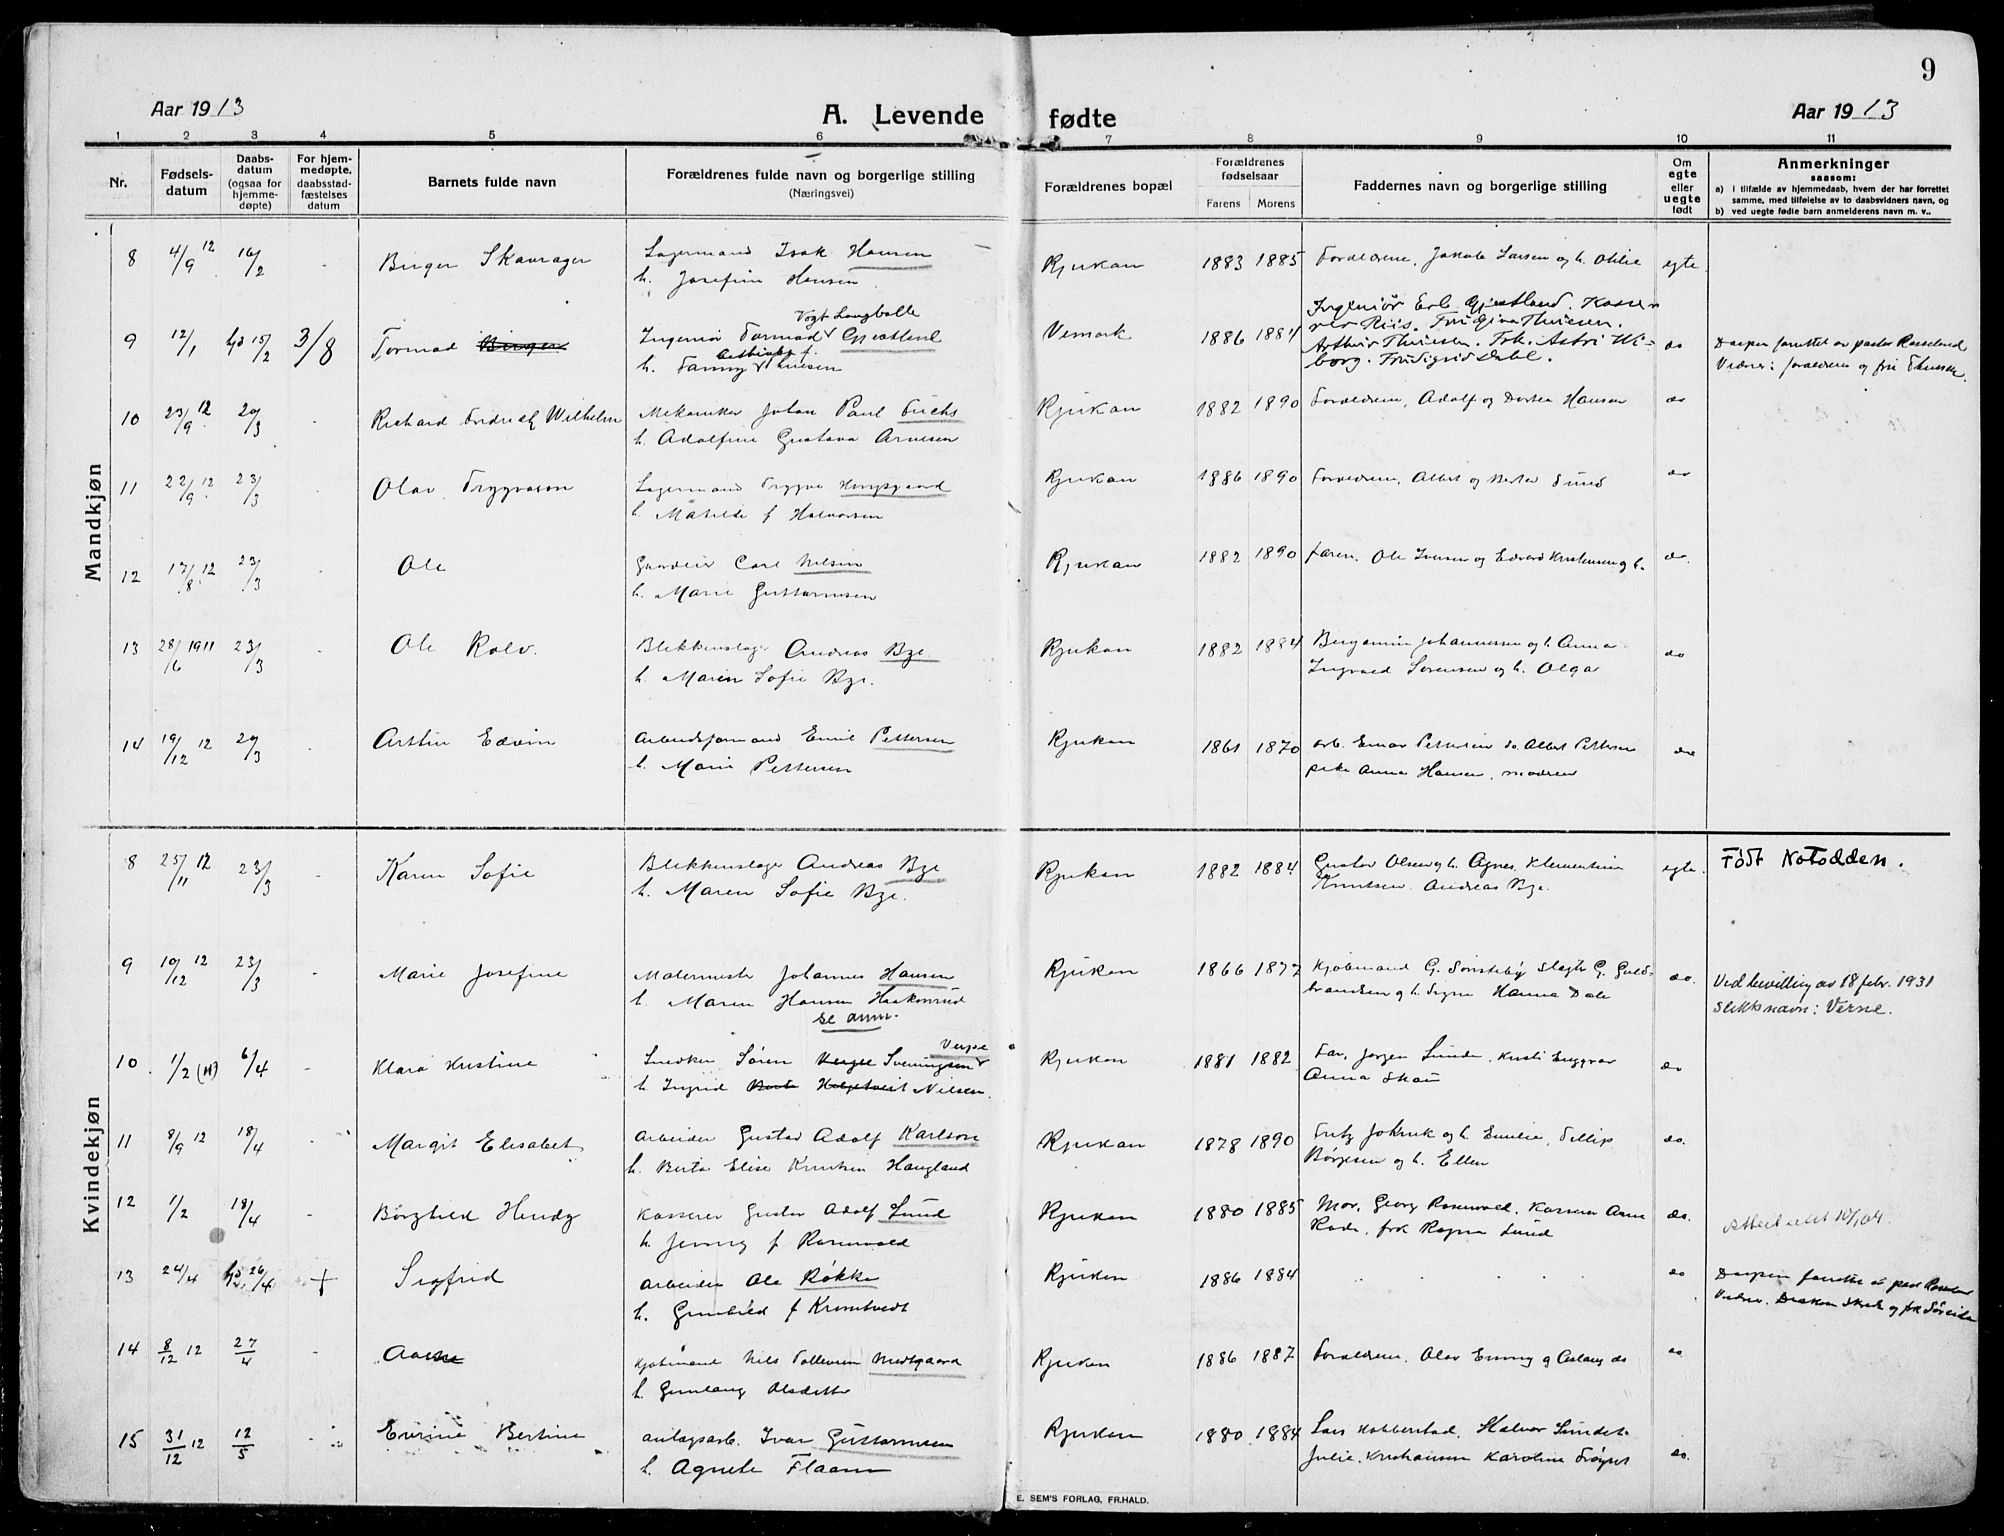 9
Aar 1913 A. Levende fødte Aar 1913
1 2 3 4 5 6 7 8 9 10 11
Nr. Fødselsdatum Daabsdatum (ogsaa for hjemmedøpte) For hjemmedøpte, daabsstadfæstelses datum Barnets fulde navn Forældrenes fulde navn og borgerlige stilling (Næringsvei) Forældrenes bopæl Forældrenes fødselsaar Farens Morens Faddernes navn og borgerlige stilling Om egte eller uegte født Anmerkninger saasom:
a) i tilfælde av hjemmedaab, hvem der har forrettet samme, med tilføielse av to daabsvidners navn, og
b) ved uegte fødte barn anmelderens navn m. v..
Mandkjøn
8 4/9 12 16/2 - Birger Skavrager Lagermand Isak Hansen Rjukan 1883 1885 Forældrene, Jakob Larsen og h. Otilie egte
h. Josefine Hansen
Vogt Langballe
9 12/1 hjd 15/2 3/8 Tormod Birger Ingeniør Tormod Gjestland Vemork 1886 1884 Ingeniør Erl. Gjestland. Kasserer
Riis. Thriesen.
Arthur Thriesen. Frk. Astri Wiborg. Fru Sigrid Dahl. do
h. Fanny Thriesen
Daapen forrettet av pastor Rosseland
Vidner: forældrene og fru Thriesen.
10 23/9 12 20/3 Richard Fredrick Wilhelm Mekaniker Johan Paul Fuchs Rjukan 1882 1890 Forældrene, Adolf og Dortea Hansen do
h. Adolfine Gustava Arnesen
11 22/9 12 23/3 Olav Trygvason Lagermand Trygve Rjukan 1886 1890 Forældrene, Albert og Berta Sund do
h. Matilde f Halvorsen
12 17/8 12 23/3 Ole Carl Nilsen Rjukan 1882 1890 faren, Ole Iversen og Edvard Kristensen og h. do.
h. Marie Gustavnusen
13 28/6 1911 23/3 - Ole Rolv. Blikkenslager Andreas Bye Rjukan 1882 1884 Benjamin Johannessen og h. Anna
h. Maren Sofie Bye. Ingvald Sørensen og h. Olga do
14 19/12 12 20/3 Edvin Arbeidsformand Emil Pettersen Rjukan 1861 1870 arb. Einar Pettersen do Albert Pettersen
h. Marie Pettersen pike Anna Hansen, moderen
Kvindekjøn
8 25/11 12 23/3 Karen Sofie Blikkenslager Andreas Bye Rjukan 1882 1884 Gustav Olsen og h. Agnes, Klementine egte. Født Notodden.
h. Maren Sofie Bye. Knutsen. Andreas Bye.
9 10/12 12 23/3 - Marie Josefine Malermester Johannes Hansen Rjukan 1866 1877 Kjøbmand G. Sønstebø Slagter G. Guldbrandsen og h. Signe Hanna Dale do.
h. Maren Hansen Haakonrud
se anm.
Ved bevilling av 18 febr. 1931
Slektsnavn: Verne.
Verpe
10 1/2 (11) 6/4 Klara Kristine Snedker Søren Sveningsen Rjukan 1881 1882 Far, Jørgen Lunde, Kristi
h. Ingrid Nilsen. Anna Skau do
11 8/9 12 18/4 Margit Elisabet Arbeider Gustav Adolf Karlson Rjukan 1878 1890 Fritz og h. Emilie, Fillip do.
h. Berta Elise Knutsen Haugland Børjesen og h. Ellen
12 1/2 18/4 - Borghild Hendy Kasserer Gustav Adolf Lund Rjukan 1880 1885 Mor, Georg Rosenvold, Kasserer Arne do.
h. Jenny f Rosenvold frk Ragna Lund
10/1 04.
13 24/4 hjd 26/4 + Sigfrid arbeider Ole Røkke Rjukan 1886 1884 do
h. Gunhild f Kromtvedt
Daapen forrettet av past Rosseland
Vidner. Diakon og frk
14 8/12 12 27/4 - Kjøbmand Nils Tollevsen Midtgaard Rjukan 1886 1887 Forældrene, Olav Emmy og Aslaug do do
h. Gunlaug Olsdatter
15 31/12 12 12/5 Bertine anlægsarb. Ivar Gustavnusen Rjukan 1880 1884 Lars Kobberstad, Halvor Sundet
h. Agnete Flaam Julie Kristiansen Karoline do.
E. SEM'S FORLAG, FR.HALD.